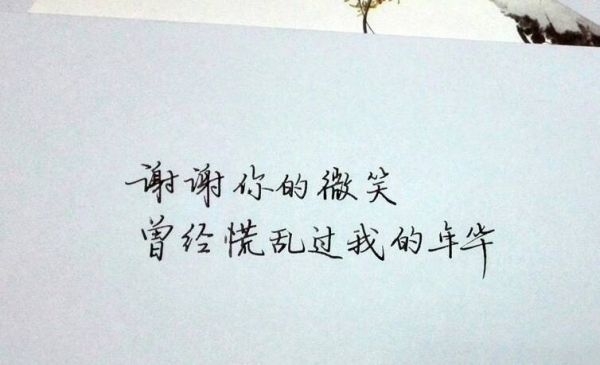 谢谢你的微笑
曾经慌乱过我的年华